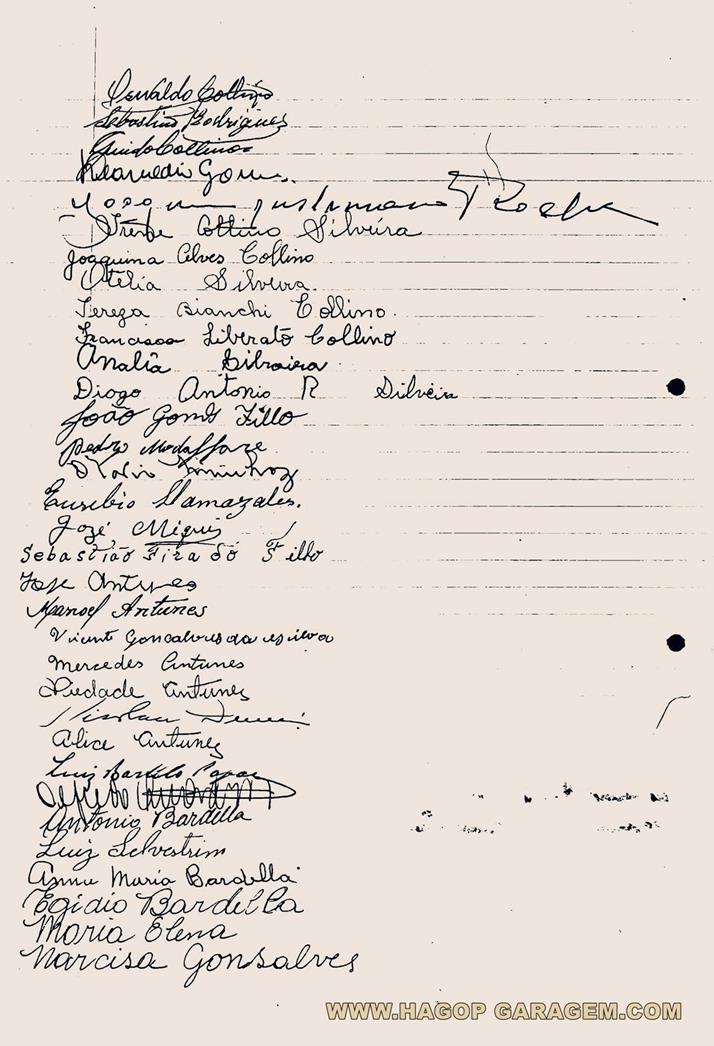 Osvaldo Collino
Sebastião Rodrigues
Guido Collino
Gomes
Rocha
Irene Collino Silveira
Joaquina Alves Collino
Otelia Silveira.
Tereza Bianchi Collino.
Francisca Liberato Collino
Analia Silveira
Diogo Antonio R Silveira
João Gomes Filho
Pedro Modaffare
Eusebio Llamazales.
José, Migui
Sebastião Firado Filho
Jose Antunes
Manoel Antunes
Vicente Goncalves da silva
Mercedes Antunes
Piedade Antunes
Nicolau
Alice Antunes
Luiz Bardela
Antonio Bardella
Luiz Selvestrim
Anna Maria Bardella
Egidio Bardella
Maria Elena
Narcisa Gonsalves
WWW.HAGOP GARAGEM.COM